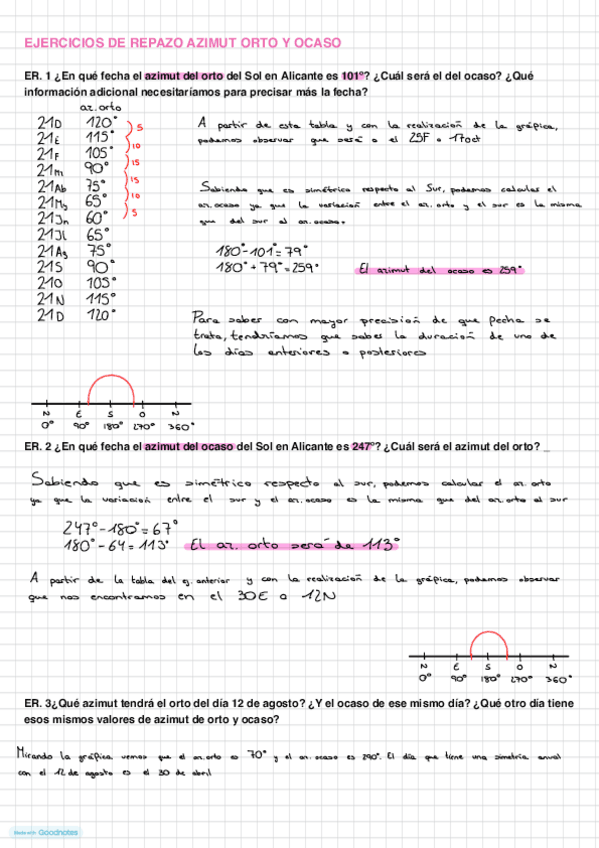 EJERCICIOS DE REPAZO AZIMUT ORTO Y OCASO
ER. 1 ¿En qué fecha el azimut del orto del Sol en Alicante es 101º? ¿Cuál será el del ocaso? ¿Qué
información adicional necesitaríamos para precisar más la fecha?
az. orto
21D 120°
21E 115°
21F 105°
21m 90°
21Ab 75°
21My 65°
21Jn 60°
21Jl 65°
21Ag 75°
21S 90°
21O 105°
21N 115°
21D 120°
5
10
15
15
10
5
A partir de esta tabla y con la realización de la gráfica,
podemos observar que será o el 25F o 17oct
Sabiendo que es simétrico respecto al Sur, podemos calcular el
az. ocaso ya que la variación entre el az. orto y el sur es la misma
que del sur al az. ocaso.
180°-101°=79°
180°+79°=259°
El azimut del ocaso es 259°
Para saber con mayor precisión de que fecha se
trata, tendríamos que saber la duración de uno de
los días anteriores o posteriores
N E S O N
0° 90° 180° 270° 360°
ER. 2 ¿En qué fecha el azimut del ocaso del Sol en Alicante es 247º? ¿Cuál será el azimut del orto? _
Sabiendo que es simétrico respecto al sur, podemos calcular el az. orto
ya que la variación entre el sur y el az. ocaso es la misma que del az. orto al sur
247°-180°=67°
180°-64=113°
El az. orto será de 113°
A partir de la tabla del ej. anterior y con la realización de la gráfica, podemos observar
que nos encontramos en el 30E o 12N
N E S O N
0° 90° 180° 270° 360°
ER. 3¿Qué azimut tendrá el orto del día 12 de agosto? ¿Y el ocaso de ese mismo día? ¿Qué otro día tiene
esos mismos valores de azimut de orto y ocaso?
Mirando la gráfica vemos que el az. orto es 70° y el az. ocaso es 290°. El día que tiene una simetría anual
con el 12 de agosto es el 30 de abril
Made with Goodnotes